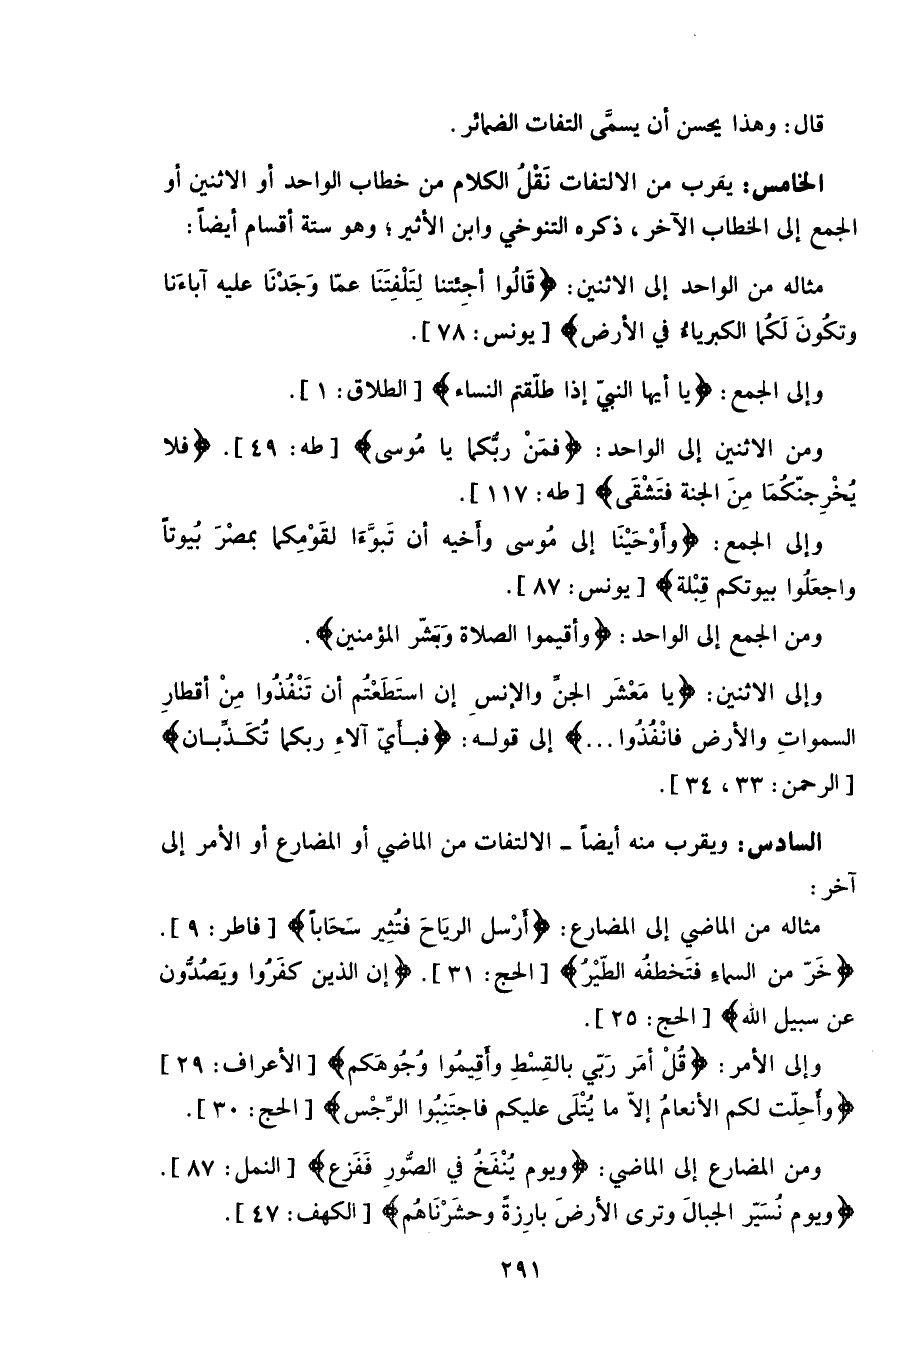 قال: وهذا يحسن أن يسمَّى التفات الضمائر.
الخامس: يقرب من الالتفات نَقْلُ الكلام من خطاب الواحد أو الاثنين أو
الجمع إلى الخطاب الآخر، ذكره التنوخي وابن الأثير؛ وهو ستة أقسام أيضاً:
مثاله من الواحد إلى الاثنين: ﴿قَالُوا أجِئتنا لِتَلْفِتَنَا عمّا وَجَدْنَا عليه آباءَنا
وتكُونَ لَكُما الكبرياءُ في الأرض﴾ [يونس: ٧٨].
وإلى الجمع: ﴿يا أيها النبيّ إذا طلّقتم النساء﴾ [الطلاق: ١].
ومن الاثنين إلى الواحد: ﴿فمَنْ ربُّكما يا مُوسى﴾ [طه: ٤٩]. ﴿فلا
يُخْرِجنّكُمَا مِنَ الجنة فتَشْقَى﴾ [طه: ١١٧].
وإلى الجمع: ﴿وأَوْحَيْنَا إلى مُوسى وأَخيه أن تَبوَّءَا لقَوْمِكما بمصْرَ بُيوتاً
واجعَلُوا بيوتكم قِبْلة﴾ [يونس: ٨٧].
ومن الجمع إلى الواحد: ﴿وأقيموا الصلاة وَبَشّر المؤمنين﴾.
وإلى الاثنين: ﴿يا مَعْشَر الجنِّ والإنسِ إن استَطَعْتُم أن تَنْفُذُوا مِنْ أقطارِ
السمواتِ والأرض فانْفُذُوا...﴾ إلى قوله: ﴿فبأَيّ آلاءِ ربكما تُكَذِّبان﴾
[الرحمن: ٣٣، ٣٤].
السادس: ويقرب منه أيضاً ـ الالتفات من الماضي أو المضارع أو الأمر إلى
آخر:
مثاله من الماضي إلى المضارع: ﴿أَرْسل الريَاحَ فتُثِير سَحَاباً﴾ [فاطر: ٩].
﴿خَرّ من السماءِ فتَخطفُه الطّيْرُ﴾ [الحج: ٣١]. ﴿إن الذين كفَرُوا ويَصُدُّون
عن سبيل الله﴾ [الحج: ٢٥].
وإلى الأمر: ﴿قُلْ أمَر رَبّي بالقِسْطِ وأَقِيمُوا وُجُوهَكم﴾ [الأعراف: ٢٩]
﴿وأُحِلّت لكم الأنعامُ إلاّ ما يُتْلَى عليكم فاجتَنِبُوا الرِّجْس﴾ [الحج: ٣٠].
ومن المضارع إلى الماضي: ﴿ويوم يُنْفَخُ في الصُّورِ فَفَزع﴾ [النمل: ٨٧].
﴿ويوم نُسَيّر الجبالَ وترى الأرضَ بارِزةً وحشَرْنَاهُم﴾ [الكهف: ٤٧].
٢٩١